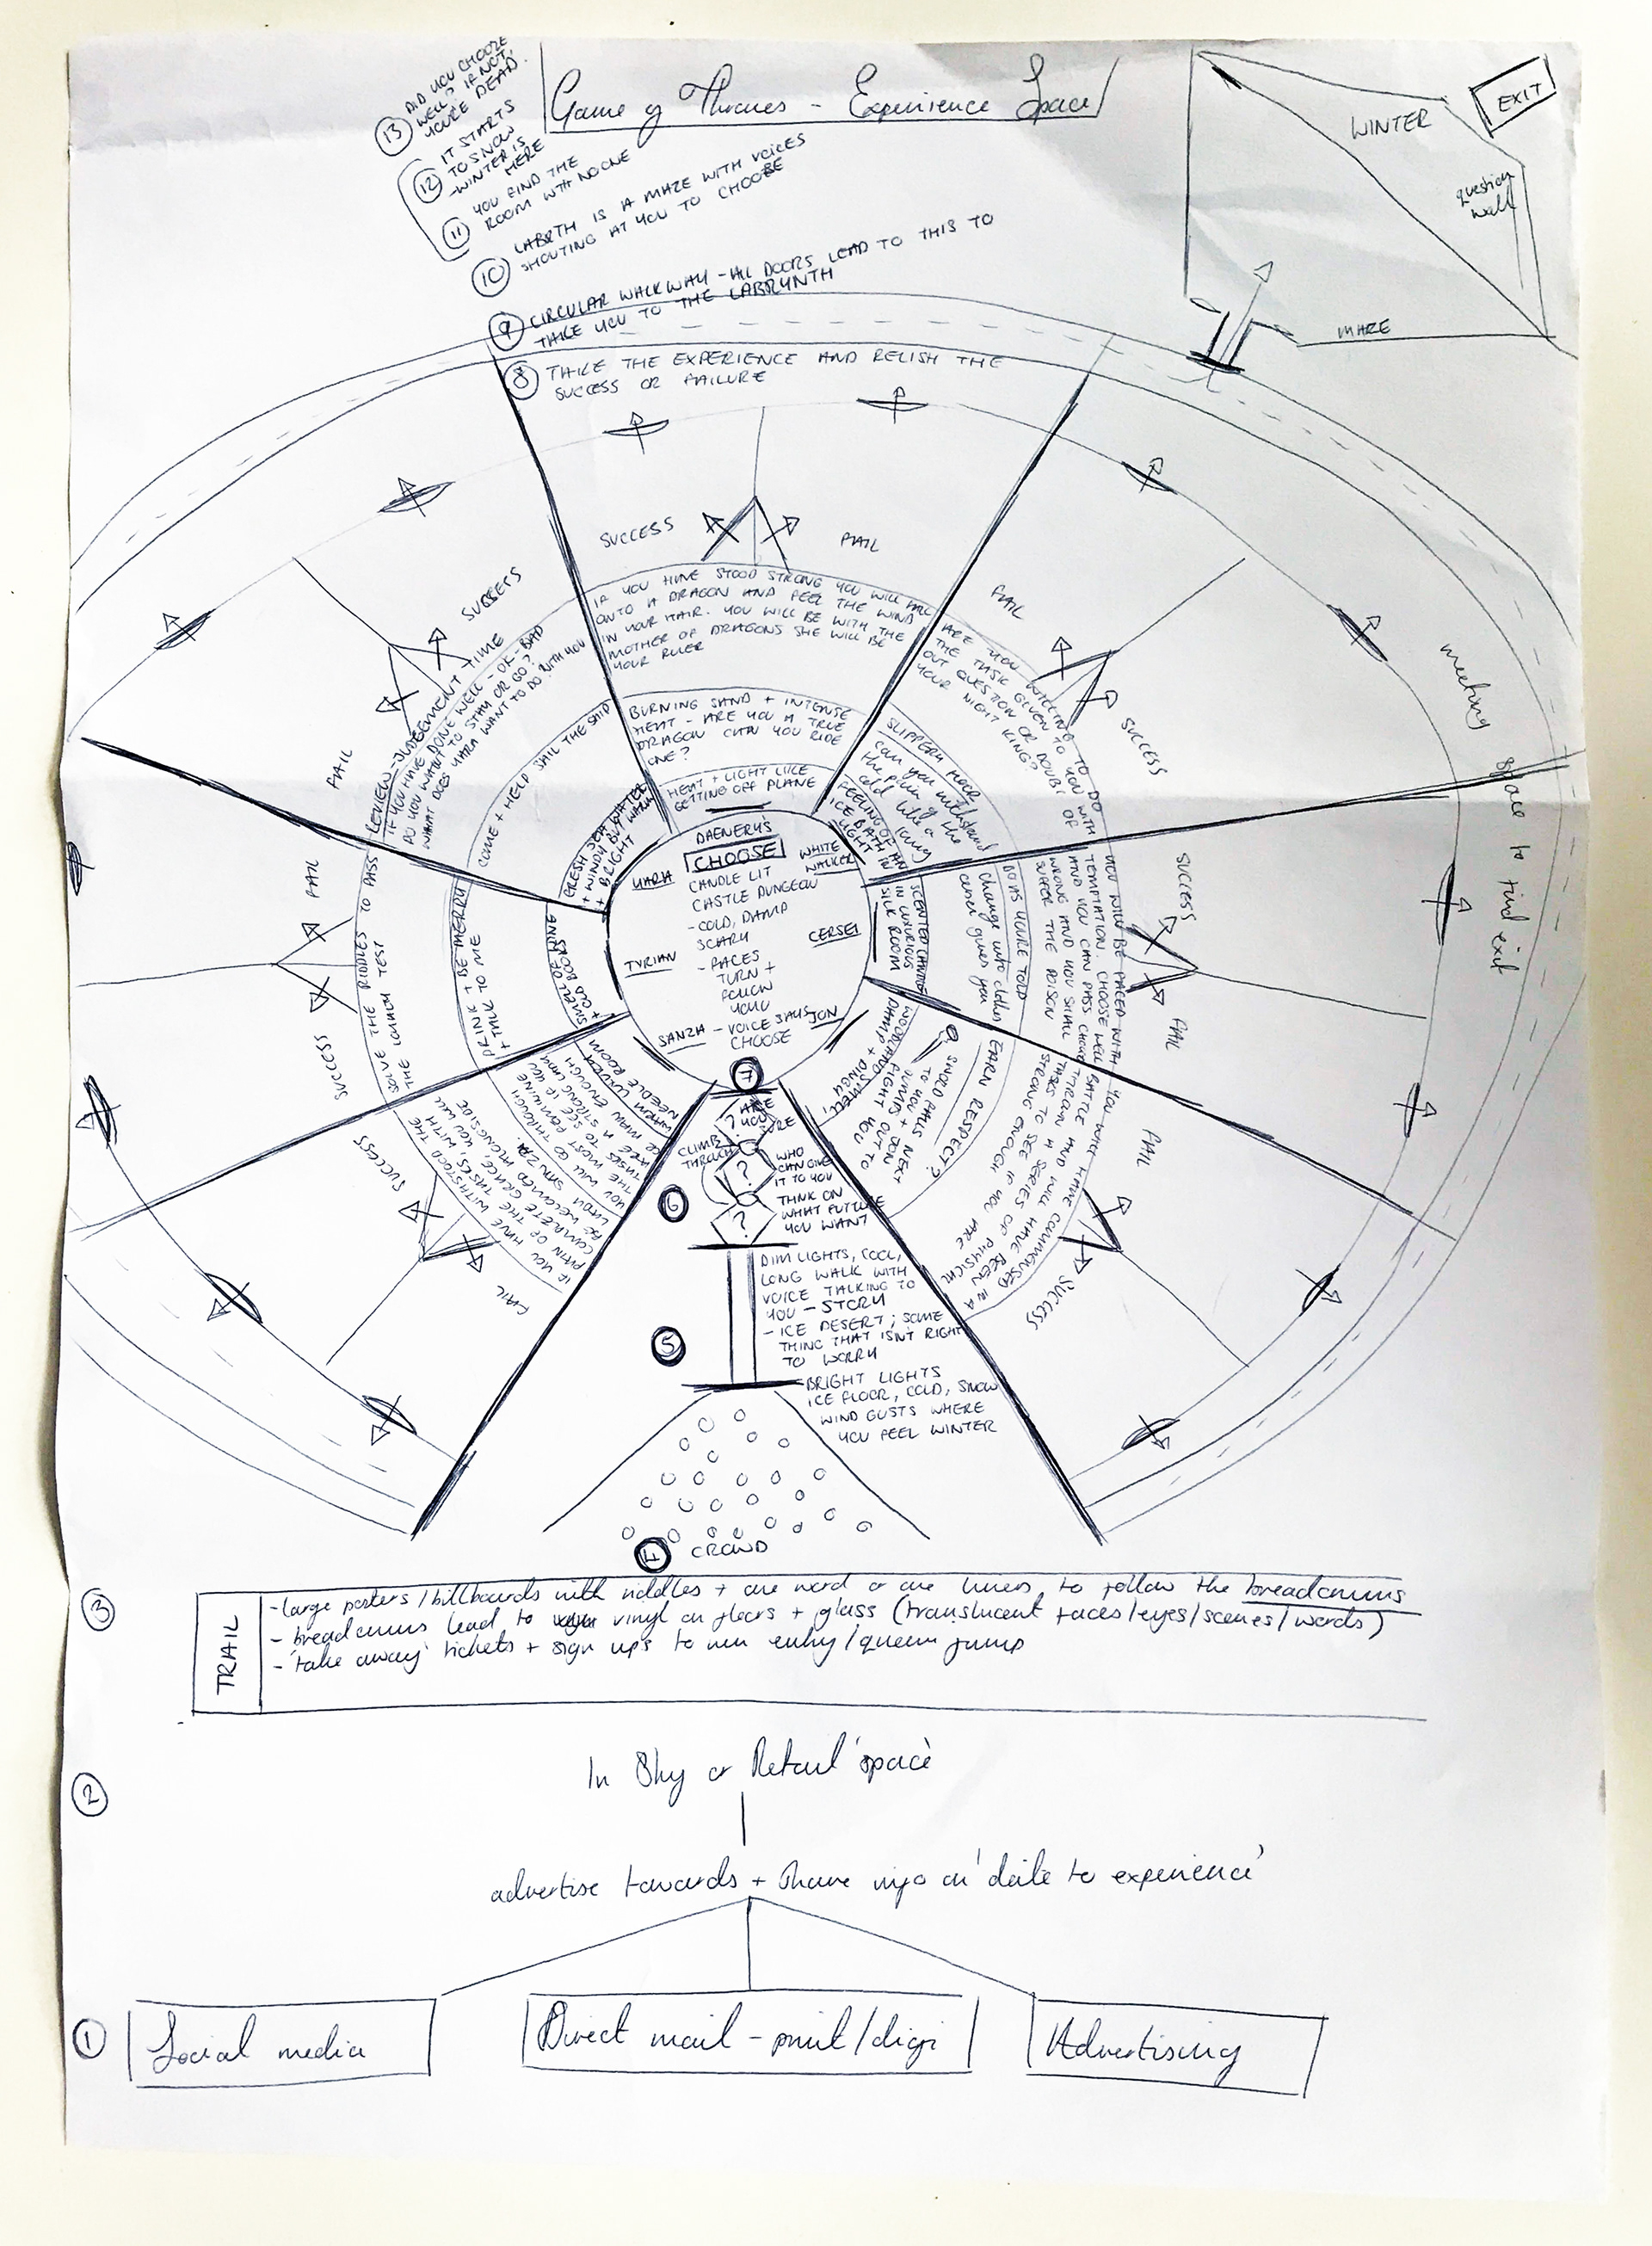 Game of Thrones - Experience Space
EXIT
WINTER
question
wall
MAZE
13
DID YOU CHOOZE
WELL? IF NOT,
YOURE DEAD.
12
IT STARTS
TO SNOW
-WINTER IS
HERE
11
YOU FIND THE
ROOM WITH NO ONE
10
LABRTH IS A MAZE WITH VOICES
SHOUTING AT YOU TO CHOOSE
9
CIRCULAR WALKWAY - ALL DOORS LEAD TO THIS TO
TAKE YOU TO THE LABRYNTH
8
TAKE THE EXPERIENCE AND RELISH THE
SUCCESS OR FAILURE
meeting space to find exit
SUCCESS
FAIL
IF YOU HAVE STOOD STRONG YOU WILL
ONTO A DRAGON AND FEEL THE WIND
IN YOUR HAIR. YOU WILL BE WITH THE
MOTHER OF DRAGONS SHE WILL BE
YOUR RULER
BURNING SAND + INTENSE
HEAT - ARE YOU A TRUE
DRAGON CAN YOU RIDE
ONE?
HEAT + LIGHT LIKE
GETTING OFF PLANE
FAIL
SUCCESS
ARE YOU WILLING TO DO
THE TASK GIVEN TO YOU WITH
OUT QUESTION OR DOUBT OF
YOUR NIGHT KING?
SLIPPERY FLOOR
can you withstand
the pain of the
cold like a
king
FEELING OF AN
ICE BATH IN
LIGHT
SUCCESS
FAIL
YOU WILL BE FACED WITH
TEMPTATION. CHOOSE WELL
AND YOU CAN PASS CHOOSE
WRONG AND YOU SHALL
SUFFER THE POISON
DO AS YOURE TOLD
Change into clothes
cersei gives you
SCENTED CANDLES
IN LUXURIOUS
SILK ROOM
FAIL
SUCCESS
YOU WILL HAVE COMMENCED IN A
BATTLE AND WILL HAVE BEEN
THROUGH A SERIES OF PHYSICAL
TASKS TO SEE IF YOU ARE
STRONG ENOUGH
EARN RESPECT?
SWORD FALLS NEXT
TO YOU + JON
JUMPS OUT TO
FIGHT YOU
WOODLAND SMELL,
DAMP + DINGY
SUCCESS
FAIL
REVIEW - JUDGEMENT TIME
IF YOU HAVE DONE WELL - OK - BAD
DO YOU WANT TO STAY OR GO?
WHAT DOES YARA WANT TO DO WITH YOU
COME + HELP SAIL THE SHIP
FRESH SEA WATER
+ WINDY BUT WARM
+ BRIGHT
FAIL
SUCCESS
SOLVE THE RIDDLES TO PASS
THE TEST
DRINK + BE MERRY
+ TALK TO ME
SMELL OF WINE
+ OLD BOOKS
SUCCESS
FAIL
IF YOU HAVE WITHSTOOD THE
PAIN OF THE TASKS, WITH
COMPLETE GRACE, YOU WILL
BE WELCOMED ALONGSIDE
LADY SANZA.
YOU WILL GO THROUGH
THE MOST FEMININE
TASKS TO SEE IF YOU
ARE A STRONG LADY
OR MAN ENOUGH
WARM LAVENDER
NEEDLE ROOM
DAENERYS
CHOOSE
YARA
WHITE
WALKER
CERSEI
TYRIAN
SANZA
JON
CANDLE LIT
CASTLE DUNGEON
-COLD, DAMP
SCARY
- FACES
TURN +
FOLLOW
YOU
- VOICE SAYS
CHOOSE
7
ARE
YOU
SURE
?
CLIMB
THROUGH
?
?
WHO
CAN GIVE
IT TO YOU
THINK ON
WHAT FUTURE
YOU WANT
6
DIM LIGHTS, COOL,
LONG WALK WITH
VOICE TALKING TO
YOU - STORY
- ICE DESERT; SOME
THING THAT ISNT RIGHT
TO WORRY
5
BRIGHT LIGHTS
ICE FLOOR, COLD, SNOW
WIND GUSTS WHERE
YOU FEEL WINTER
4
CROWD
3
TRAIL
-large posters/billboards with riddles + one word or one liners, to follow the breadcrumbs
- breadcrumbs lead to vinyl on floors + glass (translucent faces/eyes/scenes/words)
- 'take away' tickets + sign ups to win entry/queue jump
2
In Sky or Retail 'space'
advertise towards + share info on 'date to experience'
1
Social media
Direct mail - print/digi
Advertising